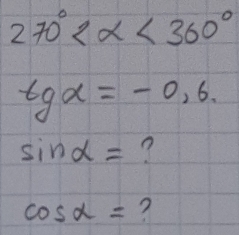 270° < α < 360°
tgα = -0,6.
sinα = ?
cosα = ?